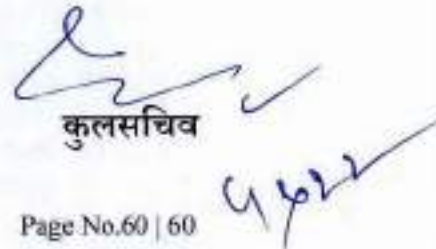 कुलसचिव
Page No.60 | 60